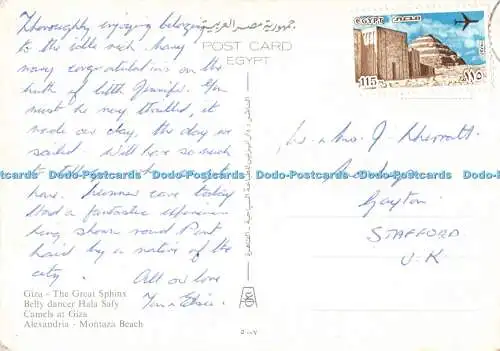 Thoroughly enjoying belonging
to the idle rich. Many
many congratulations on the
birth of little Jennifer. You
must be very thrilled, it
made our day, the day we
sailed. Will have so much
to tell you when
home. came today
Had a fantastic experience
being shown round Port
Said by a native of the
city.
All our love
جمهورية مصر العربية
POST CARD
EGYPT
EGYPT مصر
115 ١١٥
Mr & Mrs J
Gayton
STAFFORD
U.K
Dodo-Postcards Dodo-Postcards Dodo-Postcards Dodo-Postcards Dodo-Postcards Dodo-Postcards
Giza - The Great Sphinx
Belly dancer Hala Safy
Camels at Giza
Alexandria - Montaza Beach